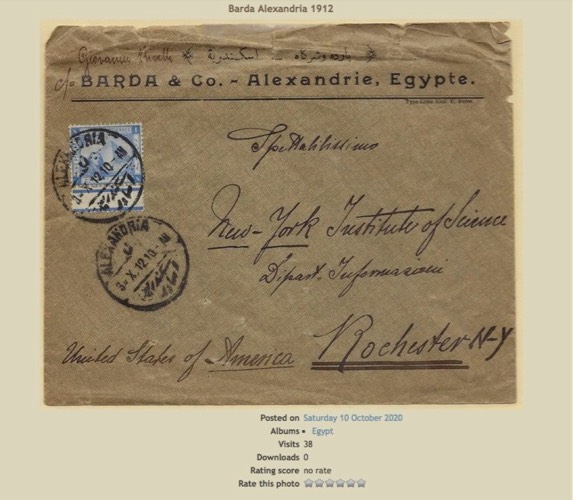 Barda Alexandria 1912
Giovanni
بارده وشركاه – اسكندرية
c/o BARDA & Co. - Alexandrie, Egypte.
Spettabilissimo
ALEXANDRIA
3-X.12.10-AM
New-York Institute of Science
ALEXANDRIA
3-X.12.10-AM
Dipart. Informazioni
Rochester N-Y
United States of America
Posted on Saturday 10 October 2020
Albums • Egypt
Visits 38
Downloads 0
Rating score no rate
Rate this photo